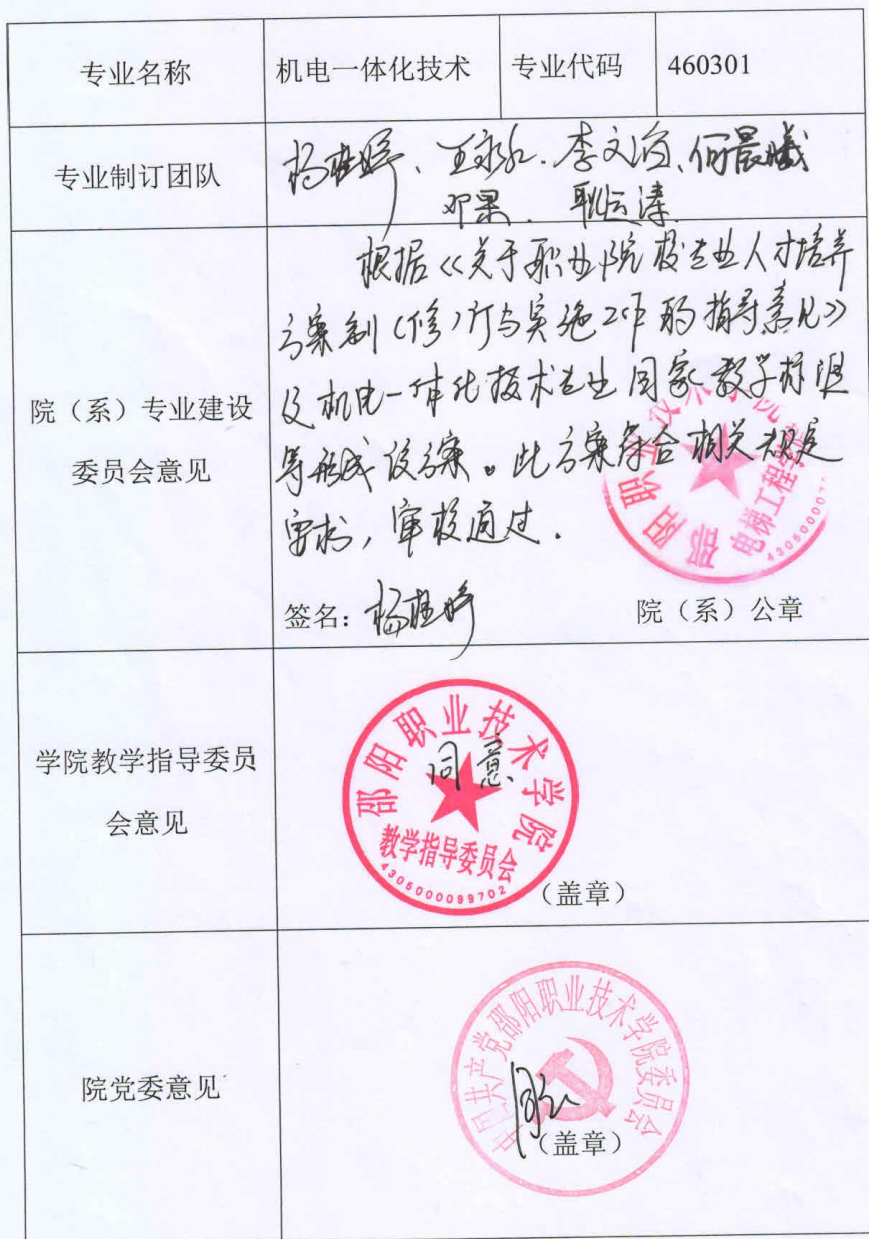 专业名称 机电一体化技术 专业代码 460301
专业制订团队
杨桂婷、王永红、李文治、何晨曦
邓果、耿运涛
院（系）专业建设
委员会意见
根据《关于职业院校专业人才培养
方案制（修）订与实施工作的指导意见》
及机电一体化技术专业国家教学标准
等形成该方案。此方案符合相关规定
要求，审核通过.
邵阳职业技术学院
电梯工程学院
签名：杨桂婷 院（系）公章
学院教学指导委员
会意见
邵阳职业技术学院
同意
教学指导委员会
4305000099702
（盖章）
院党委意见
中国共产党邵阳职业技术学院委员会
同意
（盖章）